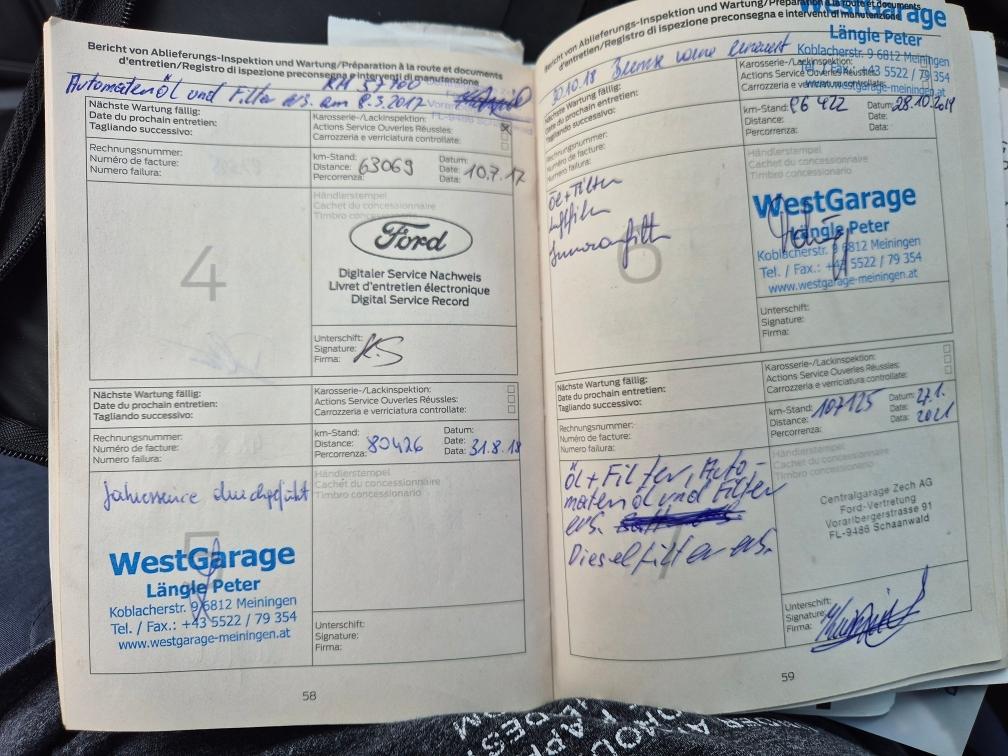 Bericht von Ablieferungs-Inspektion und Wartung/Préparation à la route et documents
d'entretien/Registro di ispezione preconsegna e interventi di manutenzione
KM 57100
Automatenöl und Filter ers. am 8.3.2017
Nächste Wartung fällig:
Date du prochain entretien:
Tagliando successivo:
Karosserie-/Lackinspektion:
Actions Service Ouverles Réussles:
Carrozzeria e verriciatura controllate:
Rechnungsnummer:
Numéro de facture:
Numero failura:
km-Stand:
Distance: 63069
Percorrenza:
Datum:
Date: 10.7.17
Data:
Händlerstempel
Cachet du concessionnaire
Timbro concessionario
4
Ford
Digitaler Service Nachweis
Livret d'entretien électronique
Digital Service Record
Unterschrift:
Signature: K.S
Firma:
Nächste Wartung fällig:
Date du prochain entretien:
Tagliando successivo:
Karosserie-/Lackinspektion:
Actions Service Ouverles Réussles:
Carrozzeria e verriciatura controllate:
Rechnungsnummer:
Numéro de facture:
Numero failura:
km-Stand:
Distance: 80426
Percorrenza:
Datum:
Date: 31.8.18
Data:
Jahresservice durchgeführt
Händlerstempel
Cachet du concessionnaire
Timbro concessionario
5
WestGarage
Längle Peter
Koblacherstr. 9 6812 Meiningen
Tel. / Fax.: +43 5522 / 79 354
www.westgarage-meiningen.at
Unterschrift:
Signature:
Firma:
58
Bericht von Ablieferungs-Inspektion und Wartung/Préparation à la route et documents
d'entretien/Registro di ispezione preconsegna e interventi di manutenzione
WestGarage
Längle Peter
Koblacherstr. 9 6812 Meiningen
Tel. / Fax.: +43 5522 / 79 354
www.westgarage-meiningen.at
30.10.18 Bremse vorne erneuert
Nächste Wartung fällig:
Date du prochain entretien:
Tagliando successivo:
Karosserie-/Lackinspektion:
Actions Service Ouverles Réussles:
Carrozzeria e verriciatura controllate:
Rechnungsnummer:
Numéro de facture:
Numero failura:
km-Stand: 96422
Distance:
Percorrenza:
Datum: 28.10.2019
Date:
Data:
Öl+Filter
Luftfilter
Innenraumfilter
6
Händlerstempel
Cachet du concessionnaire
Timbro concessionario
WestGarage
Längle Peter
Koblacherstr. 9 6812 Meiningen
Tel. / Fax.: +43 5522 / 79 354
www.westgarage-meiningen.at
Unterschrift:
Signature:
Firma:
Nächste Wartung fällig:
Date du prochain entretien:
Tagliando successivo:
Karosserie-/Lackinspektion:
Actions Service Ouverles Réussles:
Carrozzeria e verriciatura controllate:
Rechnungsnummer:
Numéro de facture:
Numero failura:
km-Stand:
Distance: 107125
Percorrenza:
Datum: 27.1.
Date: 2021
Data:
Öl+Filter, Auto-
matenöl und Filter
ers.
Dieselfilter ers.
7
Händlerstempel
Cachet du concessionnaire
Timbro concessionario
Centralgarage Zech AG
Ford-Vertretung
Vorarlbergerstrasse 91
FL-9486 Schaanwald
Unterschrift:
Signature:
Firma:
59